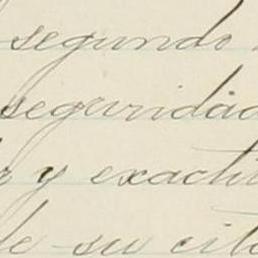 segundo
seguridad
y exactit
de su cit